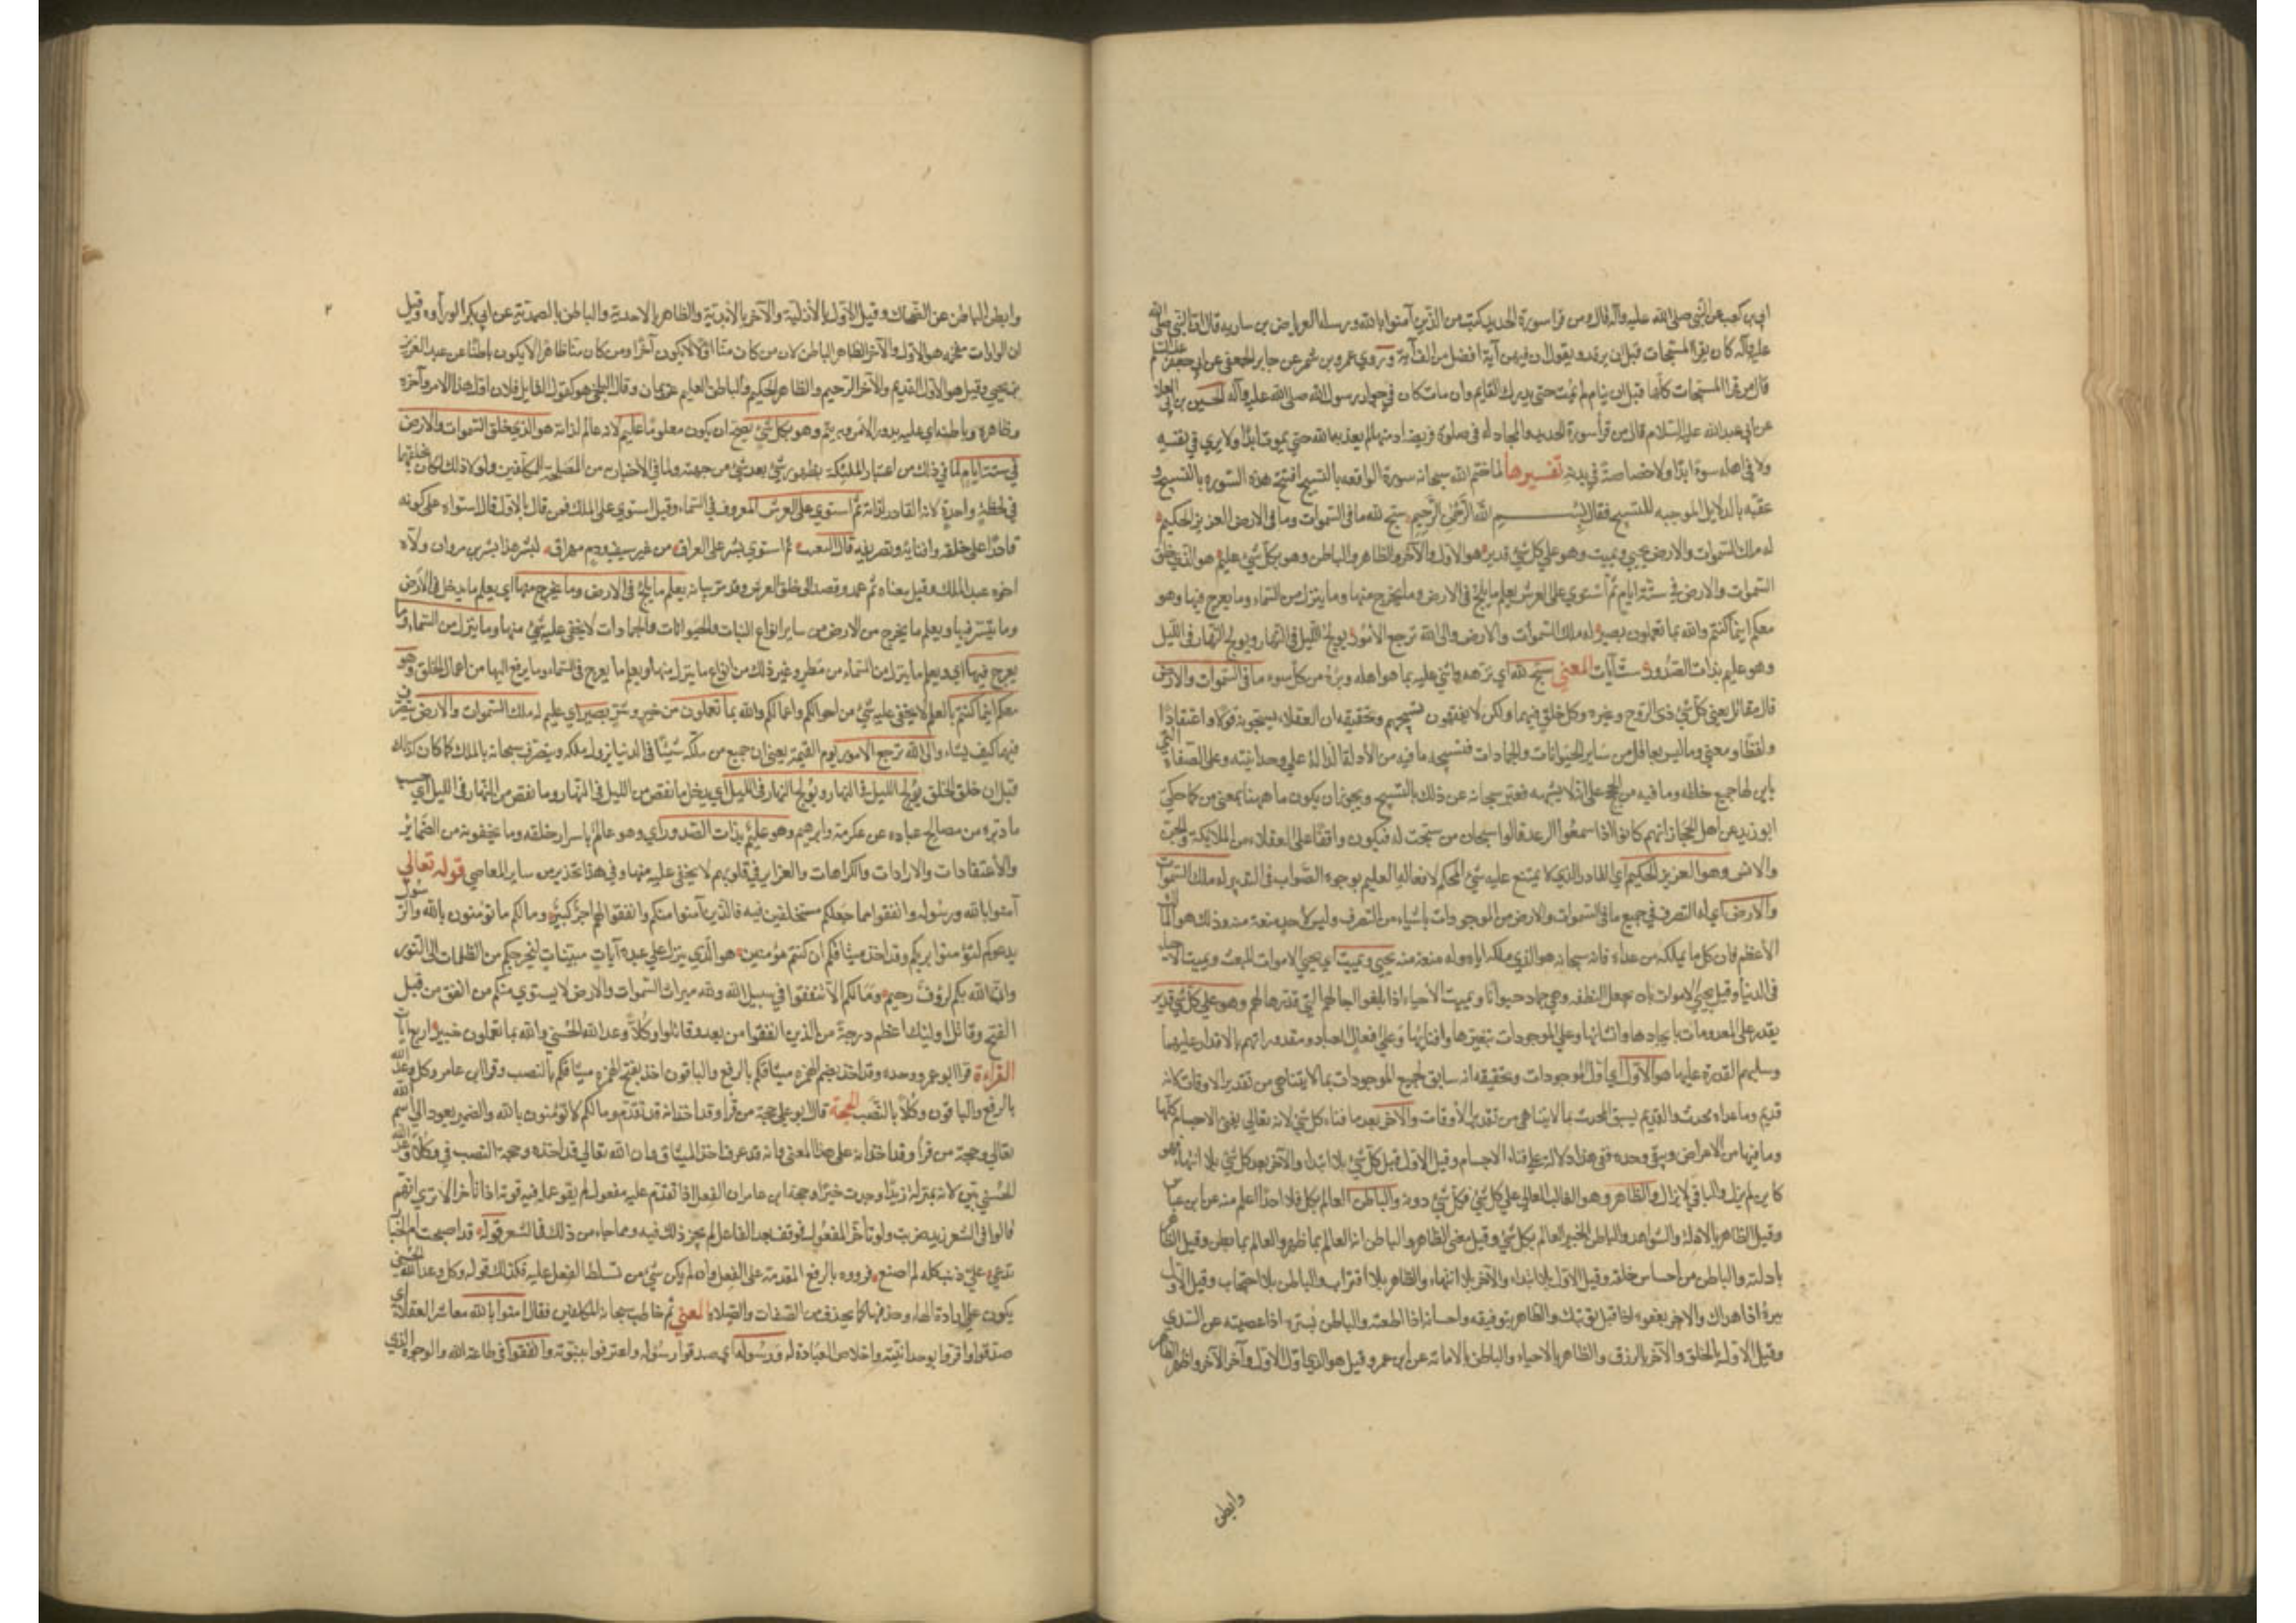 ابي بن كعب عن النبي صلى الله عليه وآله قال ومن قرا سورة الحديد كتب من الذين آمنوا بالله ورسله العرباض بن ساريه قال ان النبي صلى الله
عليه وآله كان يقرا المسبحات قبل ان يرقد ويقول ان فيهن آية افضل من الف آية وروي عمرو بن شمر عن جابر الجعفي عن ابي جعفر عليه السلام
قال من قرا المسبحات كلها قبل ان ينام لم يمت حتى يدرك القايم وان مات كان في جوار رسول الله صلى الله عليه وآله الحسين بن ابي العلا
عن ابي عبدالله عليه السلام قال من قرأ سورة الحديد والمجادله في صلوة فريضة ادمنها لم يعذبه الله حتى يموت ابدًا ولا يري في نفسه
ولا في اهله سوءًا ابدًا ولا خصاصة في بدنه تفسيرها لما ختم الله سبحانه سورة الواقعه بالتسبيح افتتح هذه السوره بالتسبيح و
عقبه بالدلايل الموجبه للتسبيح فقال بسم الله الرحمن الرحيم سبح لله ما في السموات وما في الارض وهو العزيز الحكيم
له ملك السموات والارض يحيي ويميت وهو على كل شئ قدير هو الاول والآخر والظاهر والباطن وهو بكل شئ عليم هو الذي خلق
السموات والارض في ستة ايام ثم استوي على العرش يعلم ما يلج في الارض وما يخرج منها وما ينزل من السماء وما يعرج فيها وهو
معكم اينما كنتم والله بما تعملون بصير له ملك السموات والارض والى الله ترجع الأمور يولج الليل في النهار ويولج النهار في الليل
وهو عليم بذات الصدور ست آيات المعني سبح لله اي نزهه واثني عليه بما هو اهله وبرأه من كل سوء ما في السموات والارض
قال مقاتل يعني كل شئ ذي الروح وغيره وكل خلق فيهما ولكن لا يفقهون تسبيحهم وتحقيقه ان العقلاء يسبحونه قولا واعتقادًا
ولفظًا ومعني وما ليس بعاقل من ساير الحيوانات والجمادات فتسبيحه ما فيه من الأدلة الدالة علي وحدانيته وعلى الصفات التي
باين بها جميع خلقه وما فيه من الحجج على انه لا يشبهه فعبر سبحانه عن ذلك بالتسبيح ويجوز ان يكون ما ههنا بمعني من كما حكي
ابو زيد عن اهل الحجاز انهم كانوا اذا سمعوا الرعد قالوا سبحان من سبحت له فيكون واقعًا على العقلاء من الملائكة والجن
والانس وهو العزيز الحكيم اي القادر الذي لا يمتنع عليه شئ المحكم لافعاله العليم بوجوه الصواب في التدبير له ملك السموات
والارض اي له التصرف في جميع ما في السموات والارض من الموجودات بما شاء من التصرف وليس لأحد منعه منه وذلك هو الملك
الأعظم فان كل ما يملكه من عداه فانه سبحانه هو الذي ملكه اياه وله منعه منه يحيي ويميت اي يحيي الاموات للبعث ويميت الاحياء
في الدنيا وقيل يحيي الاموات بان يجعل النطفه وهي جماد حيوانًا ويميت الأحياء اذا بلغوا اجالهم التي قدرها لهم وهو على كل شئ قدير
يقدر على المعدومات بايجادها وانشائها وعلى الموجودات بتغييرها وافنائها وعلى افعال العباد ومقدوراتهم بالاقدار عليهما
وسلبهم القدرة عليها هو الاول اي اول الموجودات وتحقيقه انه سابق لجميع الموجودات بما لا يتناهي من تقدير الاوقات لانه
قديم وما عداه محدث والقديم يسبق المحدث بما لا يتناهي من تقدير الأوقات والاخر بعد ما فناء كل شئ لانه تعالي يفني الاجسام كلها
وما فيها من الاعراض ويبقي وحده ففي هذا دلالة على فناء الاجسام وقيل الاول قبل كل شئ بلا ابتداء والآخر بعد كل شئ بلا انتهاء فهو
كاين لم يزل والباقي لا يزال والظاهر وهو الغالب العالي علي كل شئ فكل شئ دونه والباطن العالم بكل فلا احد اعلم منه عن ابن عباس
وقيل الظاهر بالادلة والشواهد والباطن الخبير العالم بكل شئ وقيل معني الظاهر والباطن انه العالم بما ظهر والعالم بما بطن وقيل الظاهر
بادلته والباطن من احساس خلقه وقيل الاول بلا ابتداء والآخر بلا انتهاء والظاهر بلا اقتراب والباطن بلا احتجاب وقيل الاول
ببره اذا هداك والاخر بعفوه اذا قبل توبتك والظاهر بتوفيقه واحسانه اذا اطعته والباطن بستره اذا عصيته عن السدي
وقيل الاول بالخلق والآخر بالرزق والظاهر بالاحياء والباطن بالاماتة عن ابن عمر وقيل هو الذي اول الاول وآخر الآخر واظهر الظاهر
وابطن
وابطن الباطن عن الضحاك وقيل الاول بالأزلية والآخر بالأبدية والظاهر بالاحدية والباطن بالصمدية عن ابي بكر الوراق وقيل
ان الواوات مقحمة هو الاول والآخر الظاهر الباطن لان من كان منا اولا لا يكون آخرًا ومن كان منا ظاهرا لا يكون باطنًا عن عبد العزيز
بن يحيي وقيل هو الاول القديم والآخر الرحيم والظاهر الحكيم والباطن العليم عن يمان وقال البلخي هو كقول القايل فلان اول هذا الامر وآخره
وظاهره وباطنه اي عليه يدور الامر وبه يتم وهو بكل شئ يصح ان يكون معلومًا عليم لانه عالم لذاته هو الذي خلق السموات والارض
في ستة ايام لما في ذلك من اعتبار الملئكة بظهور شئ بعد شئ من جهته ولما في الأخبار به من المصلحه للمكلفين ولولا ذلك لكان يخلقهما
في لحظة واحدة لانه القادر لذاته ثم استوي على العرش المعروف في السماء وقيل استوي على الملك فمن قال بالاول قال استواه على كونه
قادرًا على خلقه وافنائه وتصريفه قال البعيث ثم استوي بشر على العراق من غير سيف ودم مهراق لبشر هذا بشر بن مروان ولاه
اخوه عبد الملك وقيل معناه ثم عمد وقصد الى خلق العرش وقد مر بيانه يعلم ما يلج في الارض وما يخرج منها اي يعلم ما يدخل في الأرض
وما يستتر فيها ويعلم ما يخرج من الارض من ساير انواع النبات والحيوانات والجمادات لا يخفى عليه شئ منها وما ينزل من السماء وما
يعرج فيها اي ويعلم ما ينزل من السماء من مطر وغير ذلك من انواع ما ينزل منها ويعلم ما يعرج في السماء وما يرفع اليها من اعمال الخلق وهو
معكم اينما كنتم بالعلم لا يخفى عليه شئ من احوالكم واعمالكم والله بما تعملون من خير وشر بصير اي عليم له ملك السموات والارض يتصرف
فيهما كيف يشاء والى الله ترجع الامور يوم القيمة يعني ان جميع من ملكه شيئًا في الدنيا يزول ملكه ويتصرف سبحانه بالملك كما كان كذلك
قبل ان خلق الخلق يولج الليل في النهار ويولج النهار في الليل اي يدخل ما نقص من الليل في النهار وما نقص من النهار في الليل اي حسب
ما دبره من مصالح عباده عن عكرمة وابرهيم وهو عليم بذات الصدور اي وهو عالم باسرار خلقه وما يخفونه من الضمائر
والأعتقادات والارادات والكراهات والعزائم في قلوبهم لا يخفى عليه منها وفي هذا تحذير من ساير المعاصي قوله تعالى
آمنوا بالله ورسوله وانفقوا مما جعلكم مستخلفين فيه فالذين آمنوا منكم وانفقوا لهم اجر كبير وما لكم لا تؤمنون بالله والرسول
يدعوكم لتؤمنوا بربكم وقد اخذ ميثاقكم ان كنتم مؤمنين هو الذي ينزل على عبده آيات مبينات ليخرجكم من الظلمات الى النور
وان الله بكم لرؤف رحيم وما لكم الا تنفقوا في سبيل الله ولله ميراث السموات والارض لا يستوي منكم من انفق من قبل
الفتح وقاتل اوليك اعظم درجة من الذين انفقوا من بعد وقاتلوا وكلا وعد الله الحسنى والله بما تعملون خبير اربع آيات
القراءة قرا ابو عمرو وحده وقد اخذ بضم الهمزه ميثاقكم بالرفع والباقون اخذ بفتح الهمزه ميثاقكم بالنصب وقرا ابن عامر وكل وعد الله
بالرفع والباقون وكلا بالنصب الحجة قال ابو علي حجة من قرا وقد اخذ انه قد تقدم وما لكم لا تؤمنون بالله والضمير يعود الى اسم الله
تعالي وحجة من قرأ وقد اخذ انه على هذا المعني وانه قد عرف اخذ الميثاق وان الله تعالي قد اخذه وحجة النصب في وكلا وعد الله
الحسني بين لانه بمنزلة زيدًا وعدت خيرًا وحجة ابن عامر ان الفعل اذا تقدم عليه مفعوله لم يقو عمله فيه قوته اذا تأخر الا تري انهم
قالوا في الشعر زيد ضربت ولو تأخر المفعول فوقع بعد الفاعل لم يجز ذلك فيه ومما جاء من ذلك في الشعر قوله قد اصبحت ام الخيار
تدعي علي ذنبا كله لم اصنع فرووه بالرفع لتقدمه على الفعل وان لم يكن شئ من تسلط الفعل عليه فكذلك قوله وكل وعد الله الحسنى
يكون على ارادة الهاء وحذفها كما يحذف من الصفات والصلاة المعني ثم خاطب سبحانه المكلفين فقال آمنوا بالله معاشر العقلاء اي
صدقوا واقروا بوحدانيته واخلاص العبادة له ورسوله اي صدقوا رسوله واعترفوا بنبوته وانفقوا في طاعة الله والوجوه التي